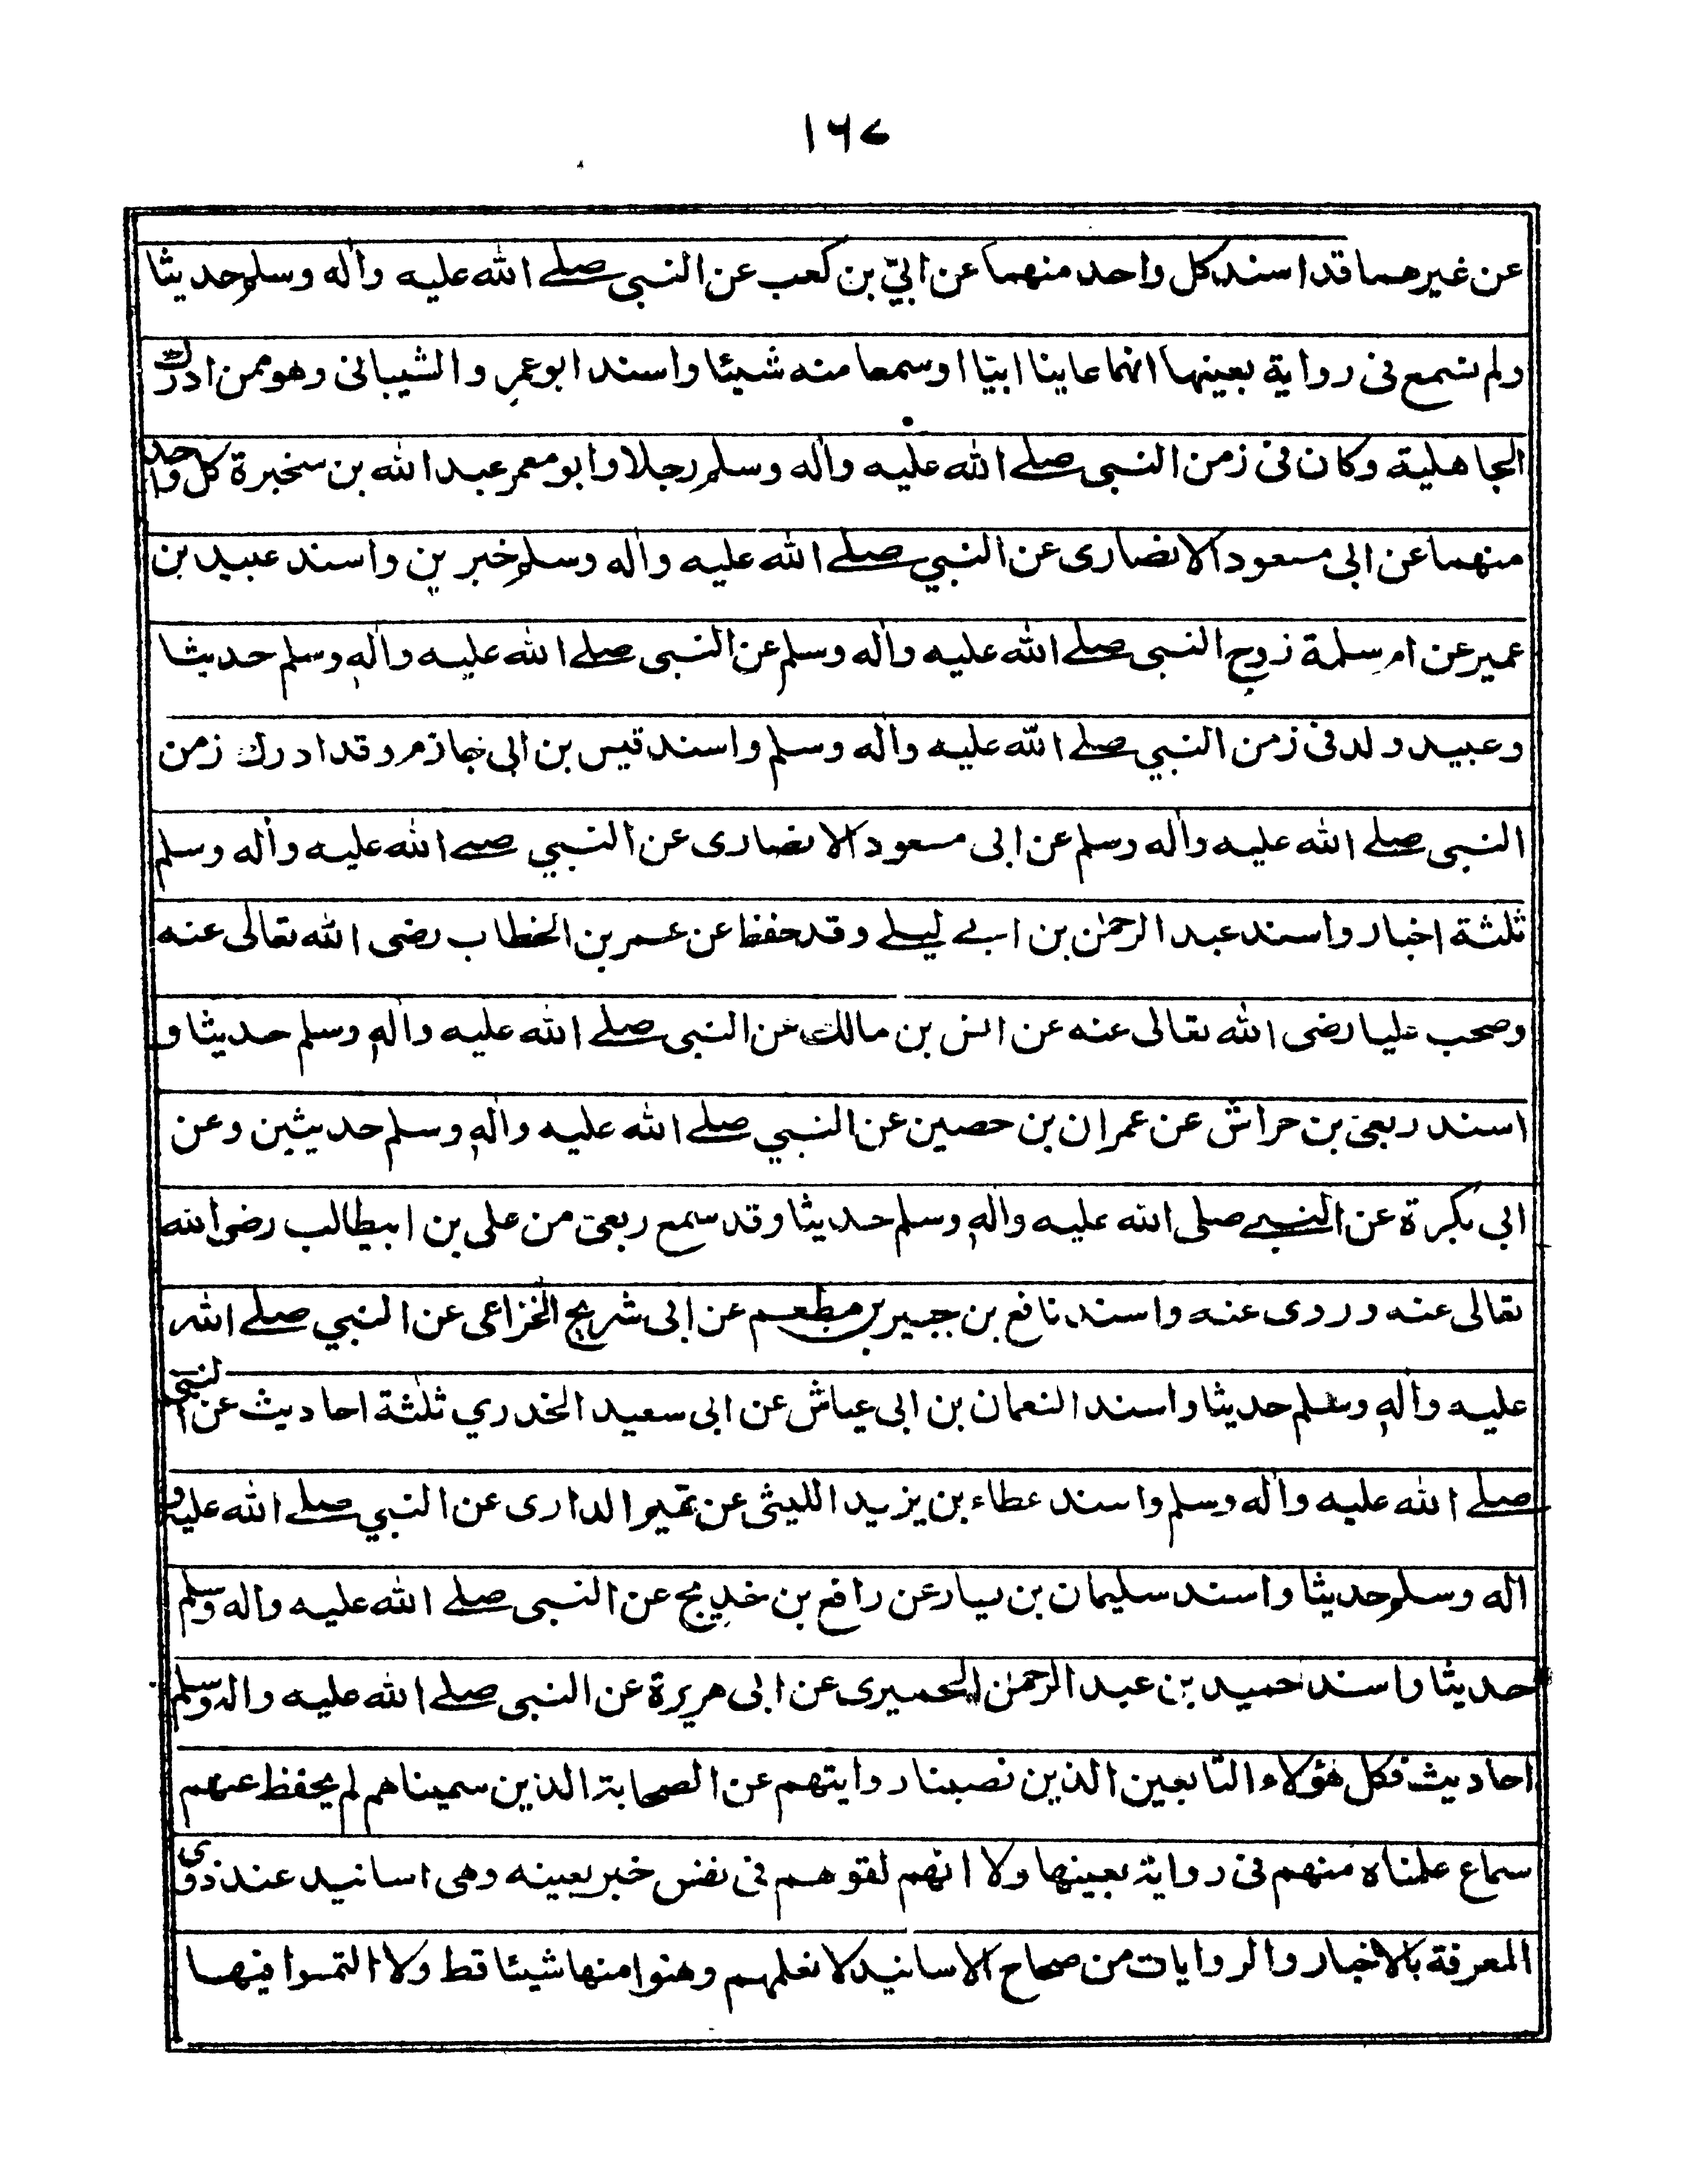 ١٦٧
عن غيرهما قد اسند كل واحد منهما عن ابيّ بن كعب عن النبى صلے الله عليه واٰله وسلم حديثا
ولم نسمع فى رواية بعينها انهما عاينا ابيّا او سمعا منه شيئا واسند ابو عمرو الشيبانى وهو ممن ادرك
الجاهلية وكان فى زمن النبى صلے الله عليه واٰله وسلم رجلا وابو معمر عبد الله بن سخبرة كل واحد
منهما عن ابى مسعود الانصارى عن النبي صلے الله عليه واٰله وسلم خبرين واسند عبيد بن
عمير عن ام سلمة زوج النبى صلے الله عليه واٰله وسلم عن النبى صلے الله عليه واٰلهٖ وسلم حديثا
وعبيد ولد فى زمن النبي صلے الله عليه واٰله وسلم واسند قيس بن ابى حازم وقد ادرك زمن
النبى صلے الله عليه واٰله وسلم عن ابى مسعود الانصارى عن النبي صلے الله عليه واٰله وسلم
ثلٰثة اخبار واسند عبد الرحمٰن بن ابے ليلے وقد حفظ عن عمر بن الخطاب رضى الله تعالى عنه
وصحب عليا رضى الله تعالى عنه عن انس بن مالك عن النبى صلے الله عليه واٰلهٖ وسلم حديثا و
اسند ربعى بن حراش عن عمران بن حصين عن النبي صلے الله عليه واٰلهٖ وسلم حديثين وعن
ابى بكرة عن النبے صلى الله عليه واٰلهٖ وسلم حديثا وقد سمع ربعى من على بن ابيطالب رضى الله
تعالى عنه وروى عنه واسند نافع بن جبير بن مطعم عن ابى شريح الخزاعى عن النبي صلے الله
عليه واٰلهٖ وسلم حديثا واسند النعمان بن ابى عياش عن ابى سعيد الخدري ثلٰثة احاديث عن النبى
صلے الله عليه واٰله وسلم واسند عطاء بن يزيد الليثى عن تميم الدارى عن النبي صلے الله عليه و
اٰله وسلم حديثا واسند سليمان بن يسار عن رافع بن خديج عن النبى صلے الله عليه واٰله وسلم
حديثا واسند حميد بن عبد الرحمٰن الحميرى عن ابى هريرة عن النبى صلے الله عليه واٰله وسلم
احاديث فكل هٰؤلاء التابعين الذين نصبنا روايتهم عن الصحابة الذين سميناهم لم يحفظ عنهم
سماع علمناه منهم فى رواية بعينها ولا انهم لقوهم فى نفس خبر بعينه وهى اسانيد عند ذوى
المعرفة بالاخبار والروايات من صحاح الاسانيد لا نعلمهم وهنوا منها شيئا قط ولا التمسوا فيها